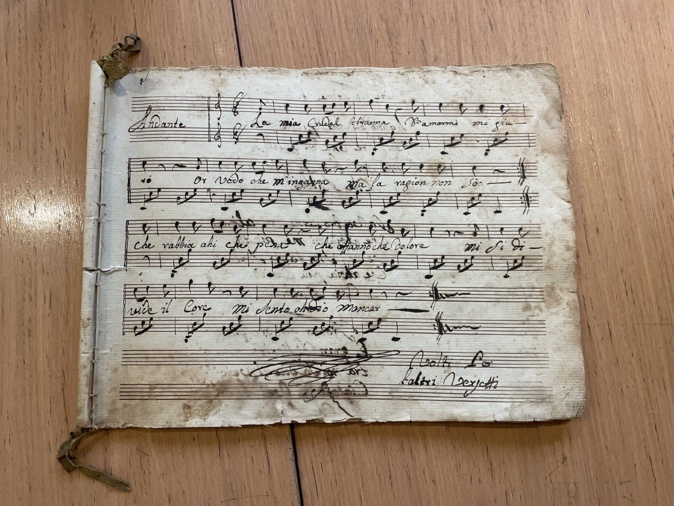 Andante
La mia Crudel tiranna D'amarmi mi giu
rò Or vedo che m'inganna Ma la ragion non Sò
che rabbia ahi che pene che affanno che dolore mi Si di
vide il Core mi Sento oh dio mancar
Volti Per
l'altri Versetti